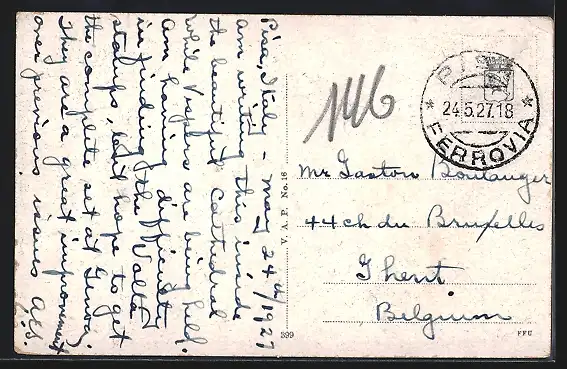 Pisa, Italy - May 24th/1927
am writing this inside
the beautiful Cathedral
while Vespers are being held.
Am having difficulty
in finding the Volta
stamps, but hope to get
the complete set at Genoa.
They are a great improvement
over previous issues
146
PISA
24.5.27.18
* FERROVIA *
V. A. P. No. 16
Mr Gaston Boulanger
44 ch du Bruxelles
Ghent
Belgium
399